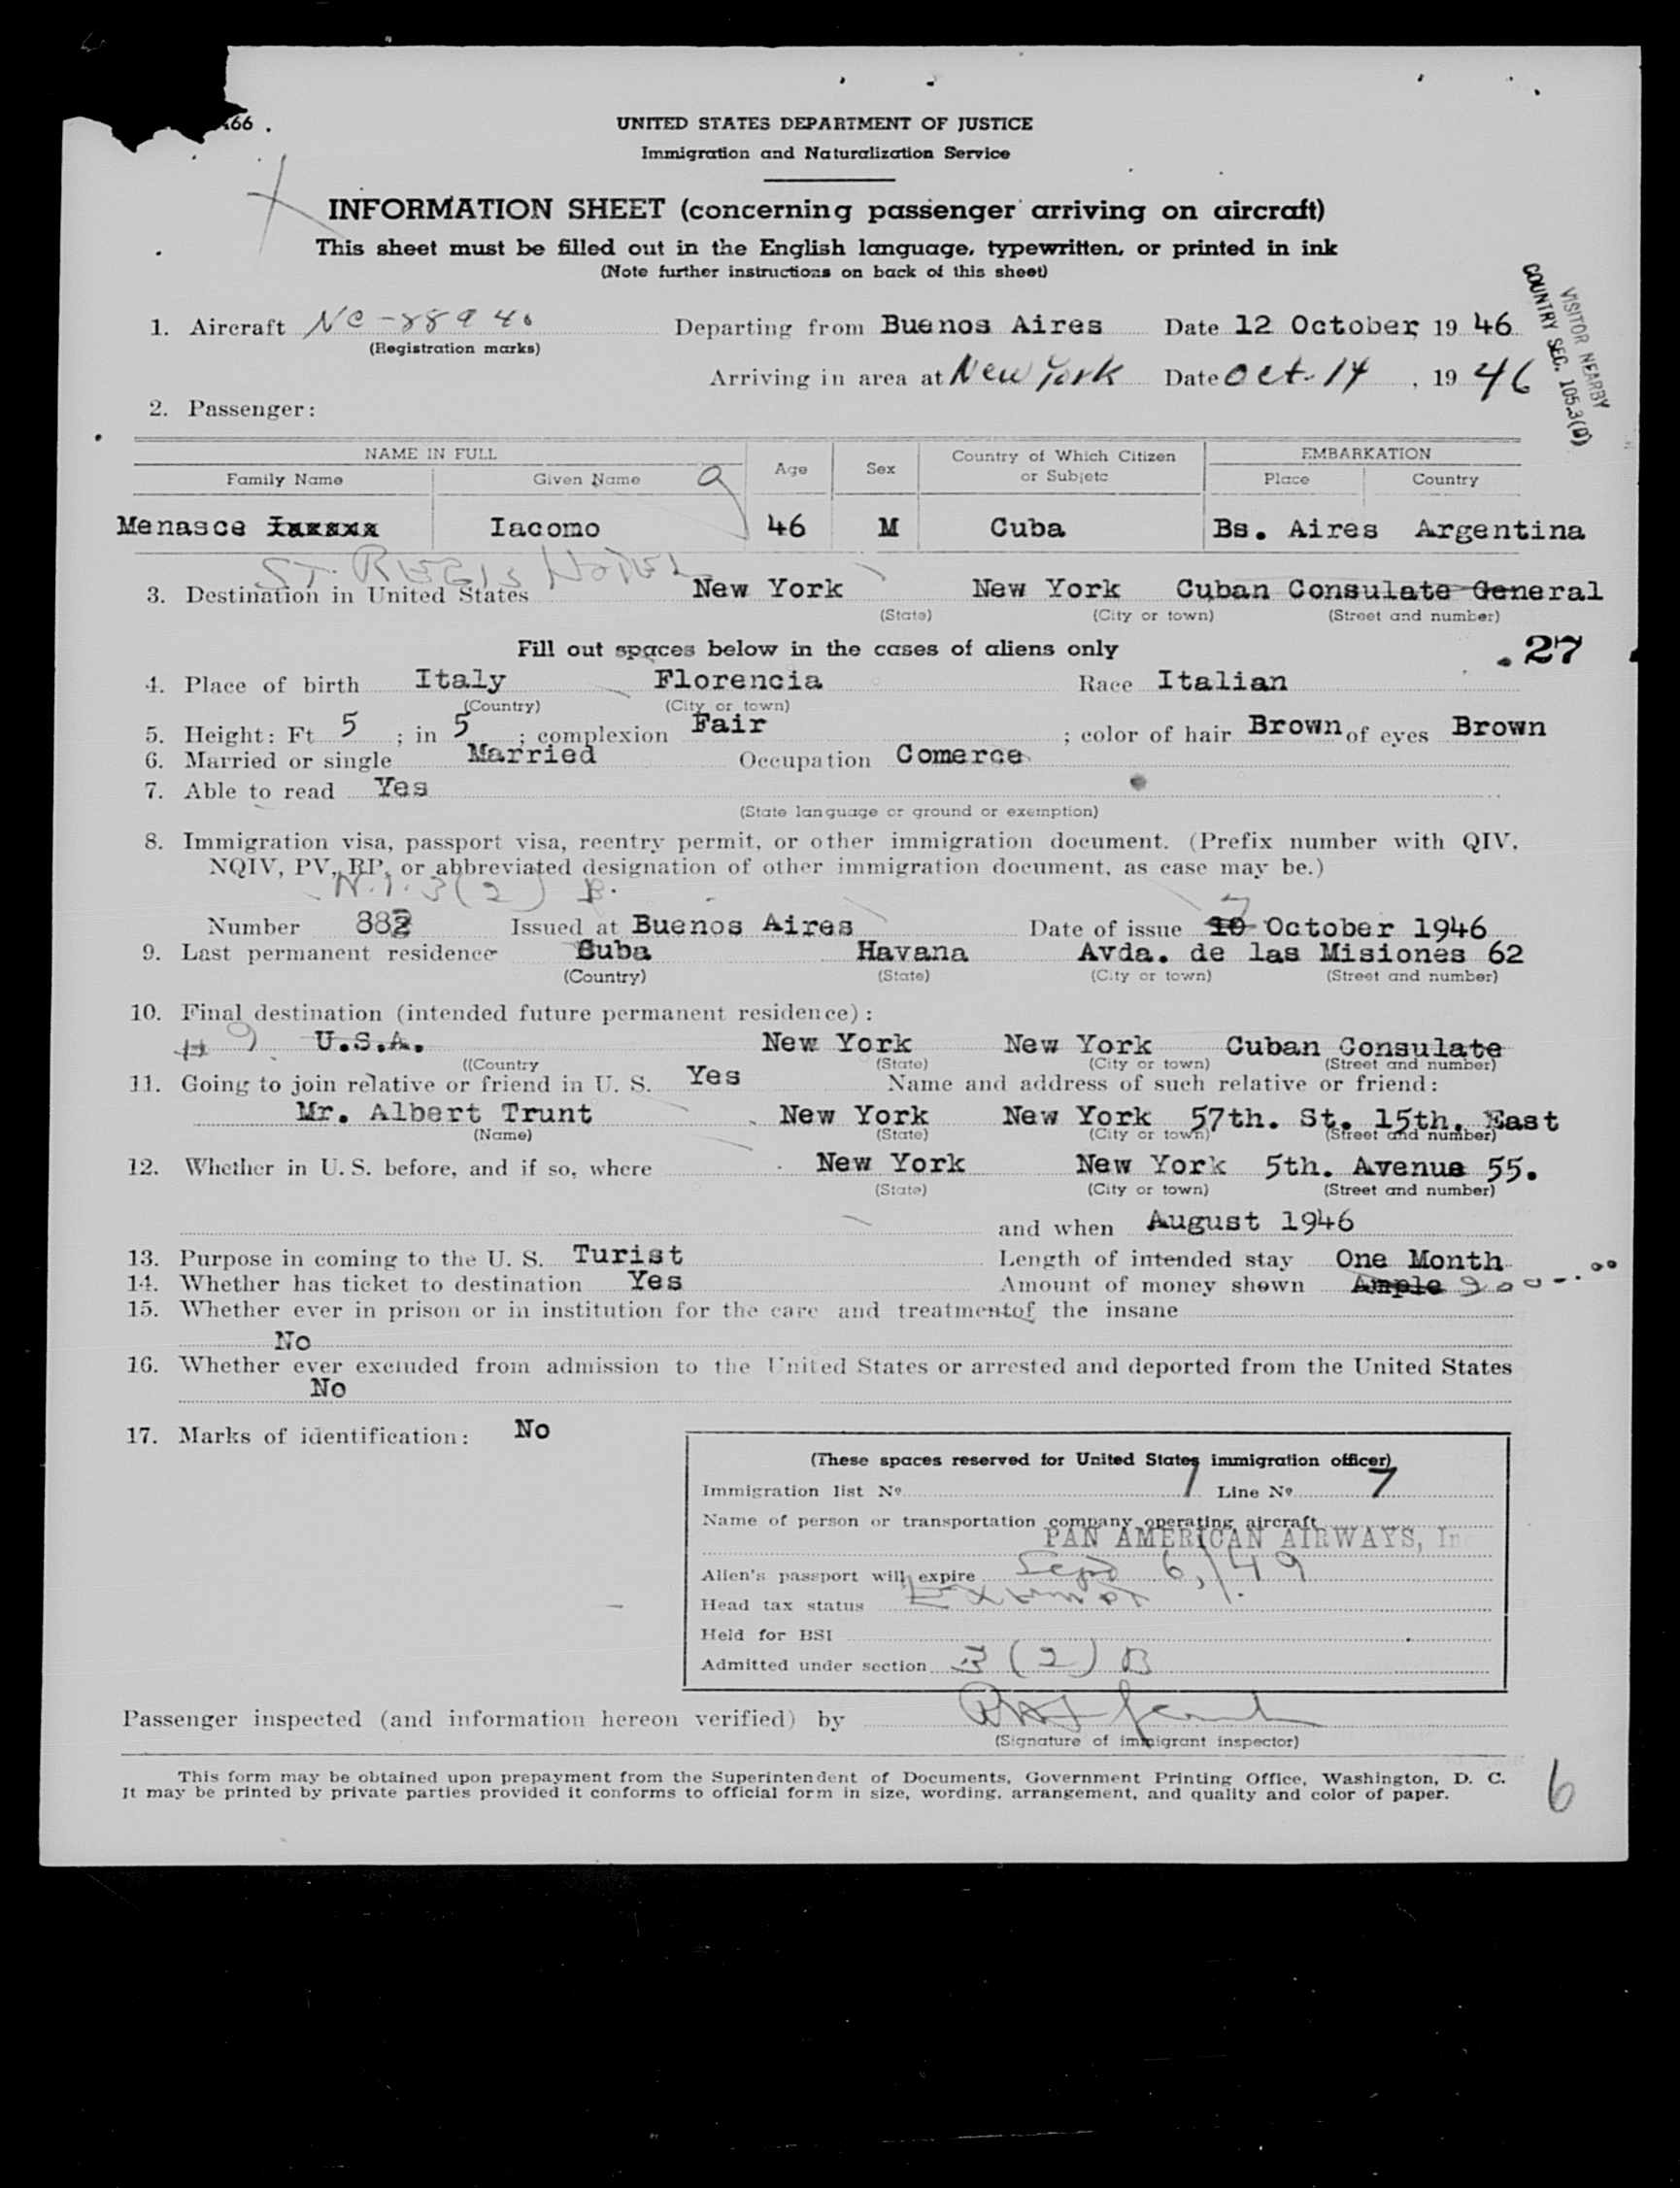 66 .
UNITED STATES DEPARTMENT OF JUSTICE
Immigration and Naturalization Service
INFORMATION SHEET (concerning passenger arriving on aircraft)
This sheet must be filled out in the English language, typewritten, or printed in ink
(Note further instructions on back of this sheet)
VISITOR NEARBY
COUNTRY SEC. 105.3(D)
1. Aircraft NC-88940 Departing from Buenos Aires Date 12 October, 19 46
(Registration marks)
Arriving in area at New York Date Oct. 14, 19 46
2. Passenger:
NAME IN FULL Age Sex Country of Which Citizen or Subjetc EMBARKATION
Family Name Given Name Place Country
Menasce Iacomo 46 M Cuba Bs. Aires Argentina
ST. REGIS HOTEL
3. Destination in United States New York New York Cuban Consulate General
(State) (City or town) (Street and number)
Fill out spaces below in the cases of aliens only
.27
4. Place of birth Italy Florencia Race Italian
(Country) (City or town)
5. Height: Ft 5 ; in 5 ; complexion Fair ; color of hair Brown of eyes Brown
6. Married or single Married Occupation Comerce
7. Able to read Yes
(State language or ground or exemption)
8. Immigration visa, passport visa, reentry permit, or other immigration document. (Prefix number with QIV,
NQIV, PV., RP, or abbreviated designation of other immigration document, as case may be.)
N.I. 3(2) B.
7
Number 882 Issued at Buenos Aires Date of issue 10 October 1946
9. Last permanent residence Cuba Havana Avda. de las Misiones 62
(Country) (State) (City or town) (Street and number)
10. Final destination (intended future permanent residence):
# 9 U.S.A. New York New York Cuban Consulate
((Country (State) (City or town) (Street and number)
11. Going to join relative or friend in U. S. Yes Name and address of such relative or friend:
Mr. Albert Trunt New York New York 57th. St. 15th. East
(Name) (State) (City or town) (Street and number)
12. Whether in U. S. before, and if so, where New York New York 5th. Avenue 55.
(State) (City or town) (Street and number)
and when August 1946
13. Purpose in coming to the U. S. Turist Length of intended stay One Month
14. Whether has ticket to destination Yes Amount of money shown Ample 900-.00
15. Whether ever in prison or in institution for the care and treatmentof the insane
No
16. Whether ever excluded from admission to the United States or arrested and deported from the United States
No
17. Marks of identification: No
(These spaces reserved for United States immigration officer)
Immigration list Nº 1 Line Nº 7
Name of person or transportation company operating aircraft
PAN AMERICAN AIRWAYS, In
Alien's passport will expire Sept 6, /49
Head tax status Exempt
Held for BSI
Admitted under section 3 (2) B
Passenger inspected (and information hereon verified) by
(Signature of immigrant inspector)
This form may be obtained upon prepayment from the Superintendent of Documents, Government Printing Office, Washington, D. C.
It may be printed by private parties provided it conforms to official form in size, wording, arrangement, and quality and color of paper.
6